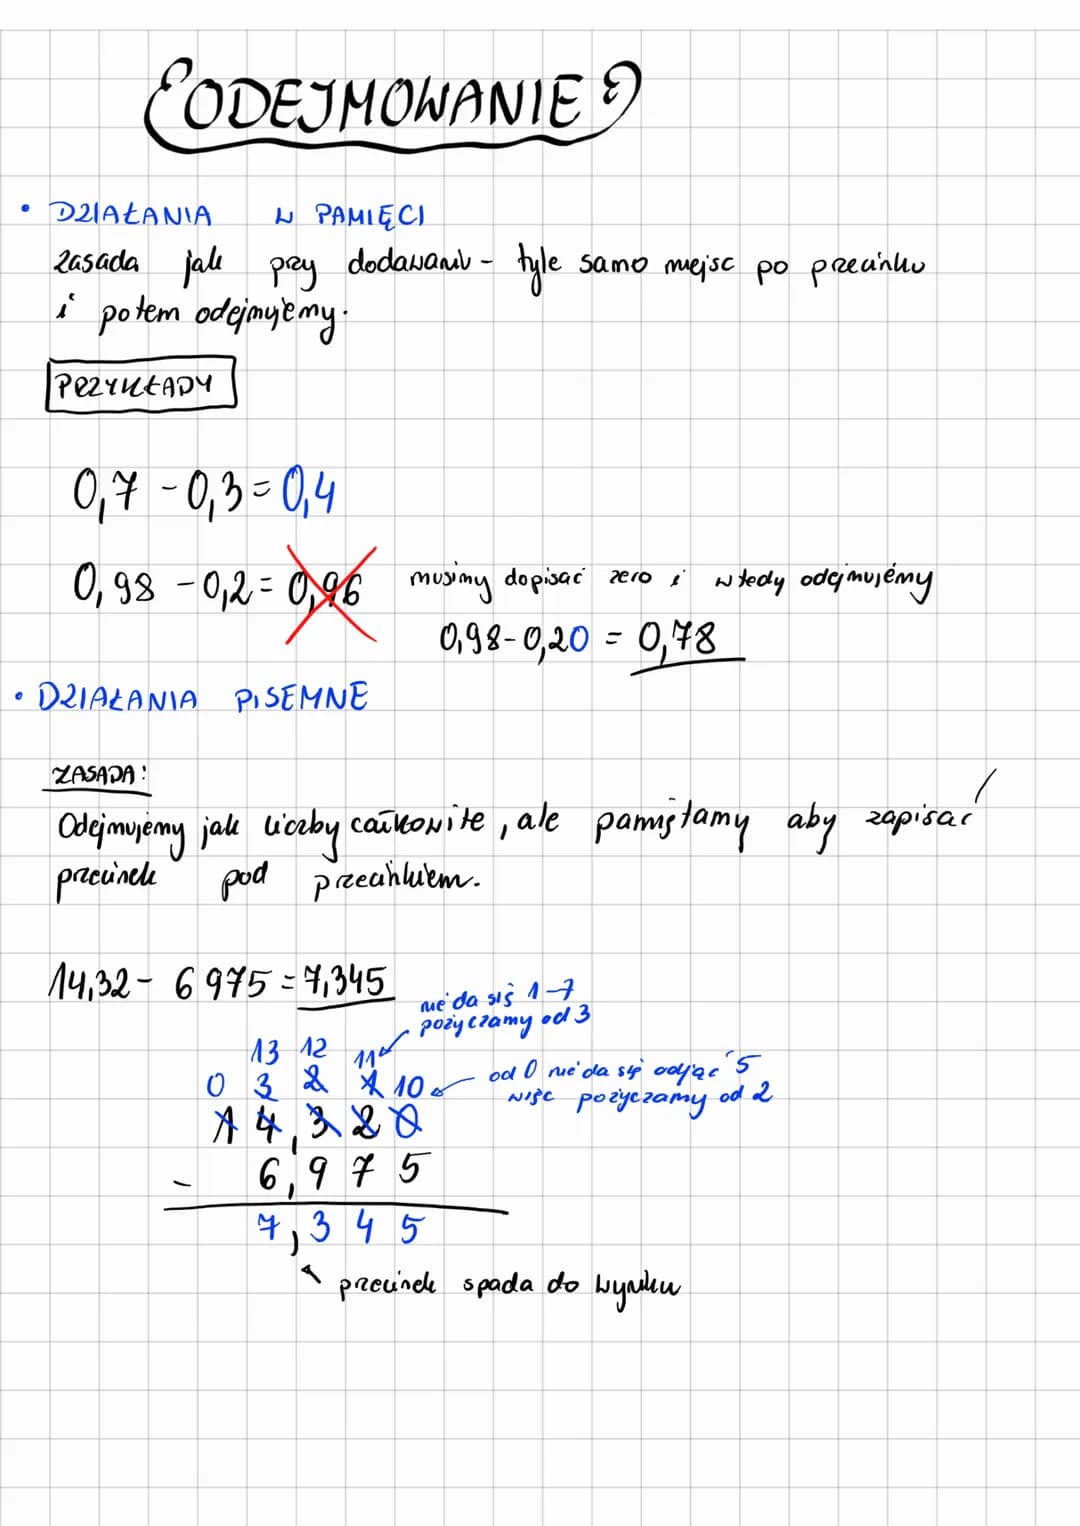 ODEJMOWANIE
• DZIAŁANIA W PAMIĘCI
zasada jak przy dodawaniu - tyle samo miejsc po przecinku
i potem odejmujemy.
PRZYKŁADY
0,7 - 0,3 = 0,4
0,98 - 0,2 = 0,96 musimy dopisać zero i wtedy odejmujemy
0,98 - 0,20 = 0,78
• DZIAŁANIA PISEMNE
ZASADA:
Odejmujemy jak liczby całkowite, ale pamiętamy aby zapisać
przecinek pod przecinkiem.
14,32 - 6 975 = 7,345
nie da się 1-7
pożyczamy od 3
13 12 11
0 3 2 1 10 od 0 nie da się odjąć 5
więc pożyczamy od 2
14,320
- 6,975
7,345
przecinek spada do wyniku